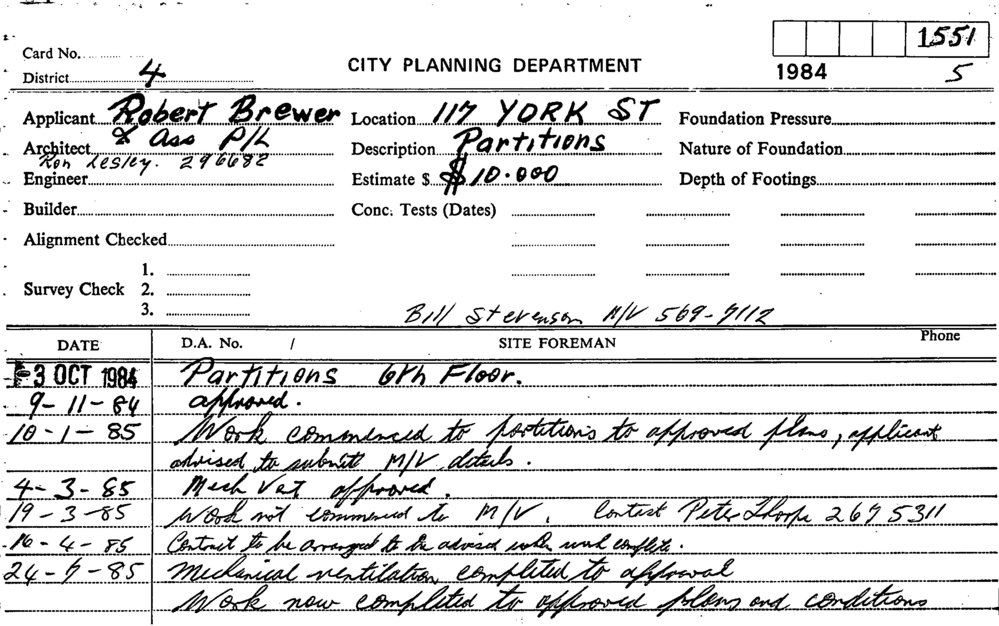 1551
Card No.
District 4
CITY PLANNING DEPARTMENT
1984 5
Applicant Robert Brewer
Location 117 YORK ST
Foundation Pressure
Architect & Ass P/L
Description Partitions
Nature of Foundation
Ron Lesley. 296682
Engineer
Estimate $ $10.000
Depth of Footings
Builder
Conc. Tests (Dates)
Alignment Checked
1.
Survey Check 2.
3.
Bill Stevenson M/V 569-7112
DATE D.A. No. / SITE FOREMAN Phone
3 OCT 1984 Partitions 6th Floor.
9-11-84 approved.
10-1-85 Work commenced to partitions to approved plans, applicant
advised to submit M/V details.
4-3-85 Mech Vet approved.
19-3-85 Work not commenced to M/V. Contact Peter Thorpe 267 5311
16-4-85 Contract to be arranged to be advised when work complete.
24-7-85 Mechanical ventilation completed to approval
Work now completed to approved plans and conditions